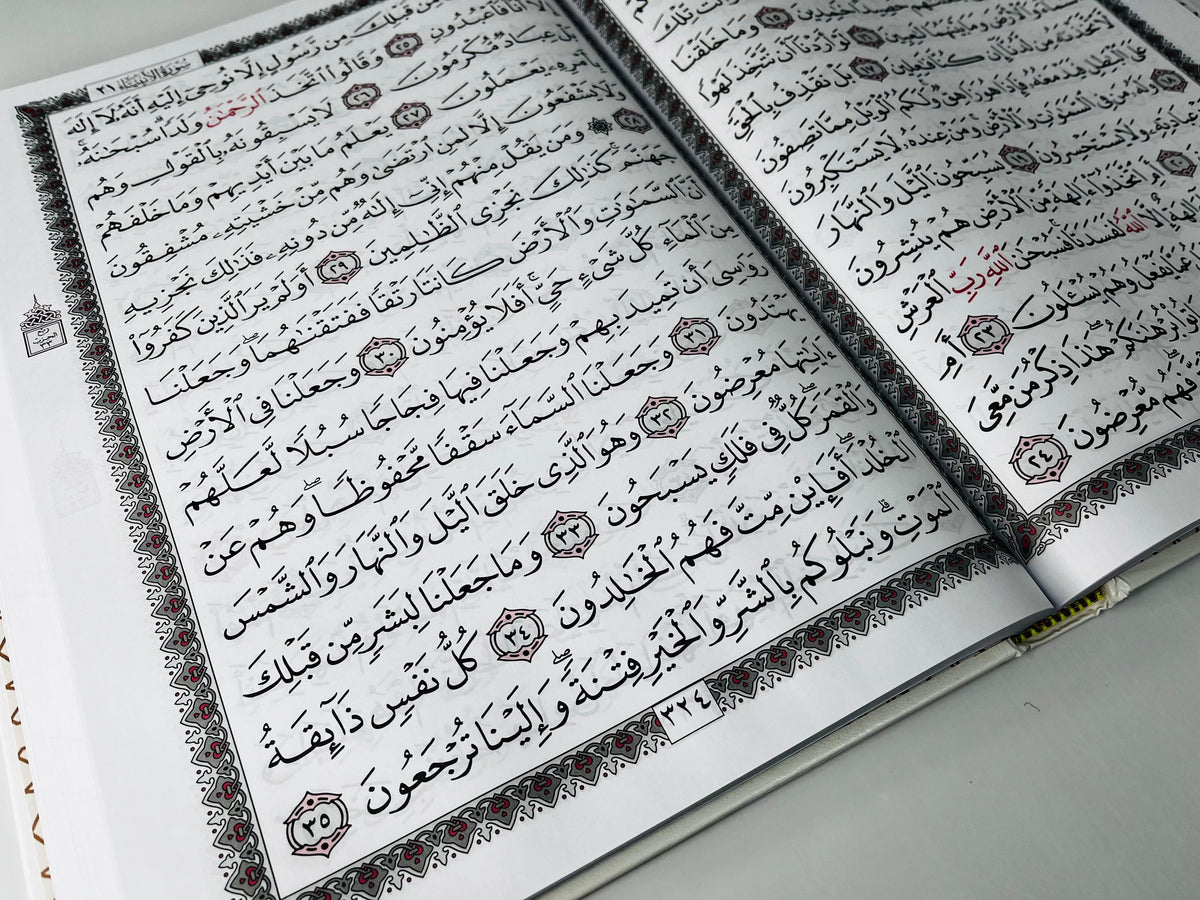 تِّلْكَ
١٥ وَمَا خَلَقْنَا
وَٱلْأَرْضَ وَمَا بَيْنَهُمَا لَٰعِبِينَ ١٦ لَوْ أَرَدْنَآ أَن نَّتَّخِذَ لَهْوًا
لَّٱتَّخَذْنَٰهُ مِن لَّدُنَّآ إِن كُنَّا فَٰعِلِينَ ١٧ بَلْ نَقْذِفُ بِٱلْحَقِّ
عَلَى ٱلْبَٰطِلِ فَيَدْمَغُهُۥ فَإِذَا هُوَ زَاهِقٌ ۚ وَلَكُمُ ٱلْوَيْلُ مِمَّا تَصِفُونَ
١٨ وَلَهُۥ مَن فِى ٱلسَّمَٰوَٰتِ وَٱلْأَرْضِ ۚ وَمَنْ عِندَهُۥ لَا يَسْتَكْبِرُونَ
عِبَادَتِهِۦ وَلَا يَسْتَحْسِرُونَ ١٩ يُسَبِّحُونَ ٱلَّيْلَ وَٱلنَّهَارَ
٢٠ أَمِ ٱتَّخَذُوٓا۟ ءَالِهَةً مِّنَ ٱلْأَرْضِ هُمْ يُنشِرُونَ
ءَالِهَةٌ إِلَّا ٱللَّهُ لَفَسَدَتَا ۚ فَسُبْحَٰنَ ٱللَّهِ رَبِّ ٱلْعَرْشِ
عَمَّا يَفْعَلُ وَهُمْ يُسْـَٔلُونَ ٢٣ أَمِ
بُرْهَٰنَكُمْ ۖ هَٰذَا ذِكْرُ مَن مَّعِىَ
فَهُم مُّعْرِضُونَ ٢٤
سُورَةُ الأَنبِيَاءِ ٢١
مِن قَبْلِكَ مِن رَّسُولٍ إِلَّا نُوحِىٓ إِلَيْهِ أَنَّهُۥ لَآ إِلَٰهَ
إِلَّآ أَنَا۠ فَٱعْبُدُونِ ٢٥ وَقَالُوا۟ ٱتَّخَذَ ٱلرَّحْمَٰنُ وَلَدًا ۗ سُبْحَٰنَهُۥ ۚ
بَلْ عِبَادٌ مُّكْرَمُونَ ٢٦ لَا يَسْبِقُونَهُۥ بِٱلْقَوْلِ وَهُم
بِأَمْرِهِۦ يَعْمَلُونَ ٢٧ يَعْلَمُ مَا بَيْنَ أَيْدِيهِمْ وَمَا خَلْفَهُمْ
وَلَا يَشْفَعُونَ إِلَّا لِمَنِ ٱرْتَضَىٰ وَهُم مِّنْ خَشْيَتِهِۦ مُشْفِقُونَ
٢٨ ۞ وَمَن يَقُلْ مِنْهُمْ إِنِّىٓ إِلَٰهٌ مِّن دُونِهِۦ فَذَٰلِكَ نَجْزِيهِ
جَهَنَّمَ ۚ كَذَٰلِكَ نَجْزِى ٱلظَّٰلِمِينَ ٢٩ أَوَلَمْ يَرَ ٱلَّذِينَ كَفَرُوٓا۟
أَنَّ ٱلسَّمَٰوَٰتِ وَٱلْأَرْضَ كَانَتَا رَتْقًا فَفَتَقْنَٰهُمَا ۖ وَجَعَلْنَا
مِنَ ٱلْمَآءِ كُلَّ شَىْءٍ حَىٍّ ۖ أَفَلَا يُؤْمِنُونَ ٣٠ وَجَعَلْنَا فِى ٱلْأَرْضِ
رَوَٰسِىَ أَن تَمِيدَ بِهِمْ وَجَعَلْنَا فِيهَا فِجَاجًا سُبُلًا لَّعَلَّهُمْ
يَهْتَدُونَ ٣١ وَجَعَلْنَا ٱلسَّمَآءَ سَقْفًا مَّحْفُوظًا ۖ وَهُمْ عَنْ
ءَايَٰتِهَا مُعْرِضُونَ ٣٢ وَهُوَ ٱلَّذِى خَلَقَ ٱلَّيْلَ وَٱلنَّهَارَ وَٱلشَّمْسَ
وَٱلْقَمَرَ ۖ كُلٌّ فِى فَلَكٍ يَسْبَحُونَ ٣٣ وَمَا جَعَلْنَا لِبَشَرٍ مِّن قَبْلِكَ
ٱلْخُلْدَ ۖ أَفَإِي۟ن مِّتَّ فَهُمُ ٱلْخَٰلِدُونَ ٣٤ كُلُّ نَفْسٍ ذَآئِقَةُ
ٱلْمَوْتِ ۗ وَنَبْلُوكُم بِٱلشَّرِّ وَٱلْخَيْرِ فِتْنَةً ۖ وَإِلَيْنَا تُرْجَعُونَ ٣٥
٣٢٤